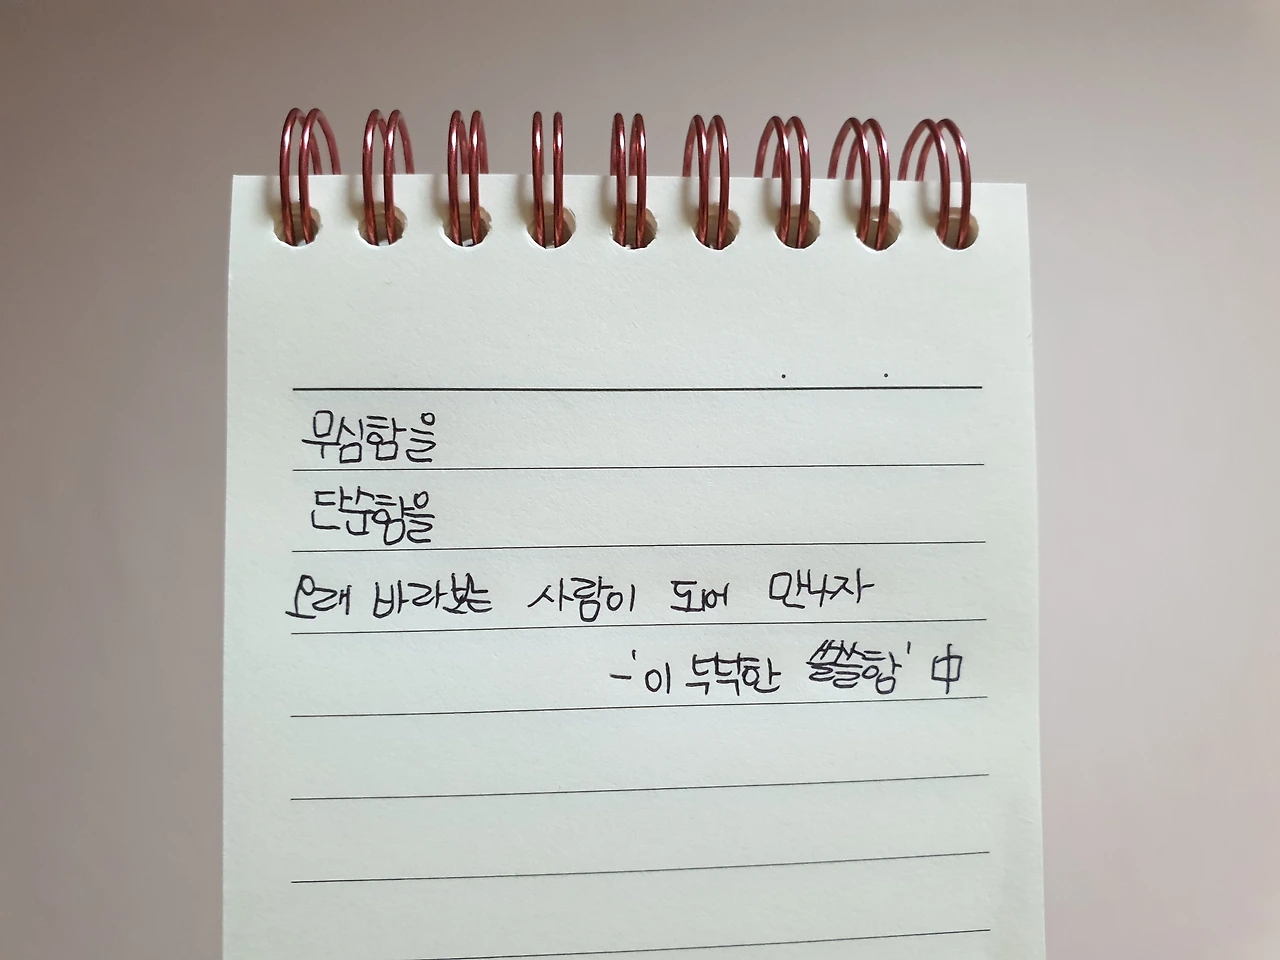 무심함을
단순함을
오래 바라보는 사람이 되어 만나자
-'이 눅눅한 쓸쓸함' 中